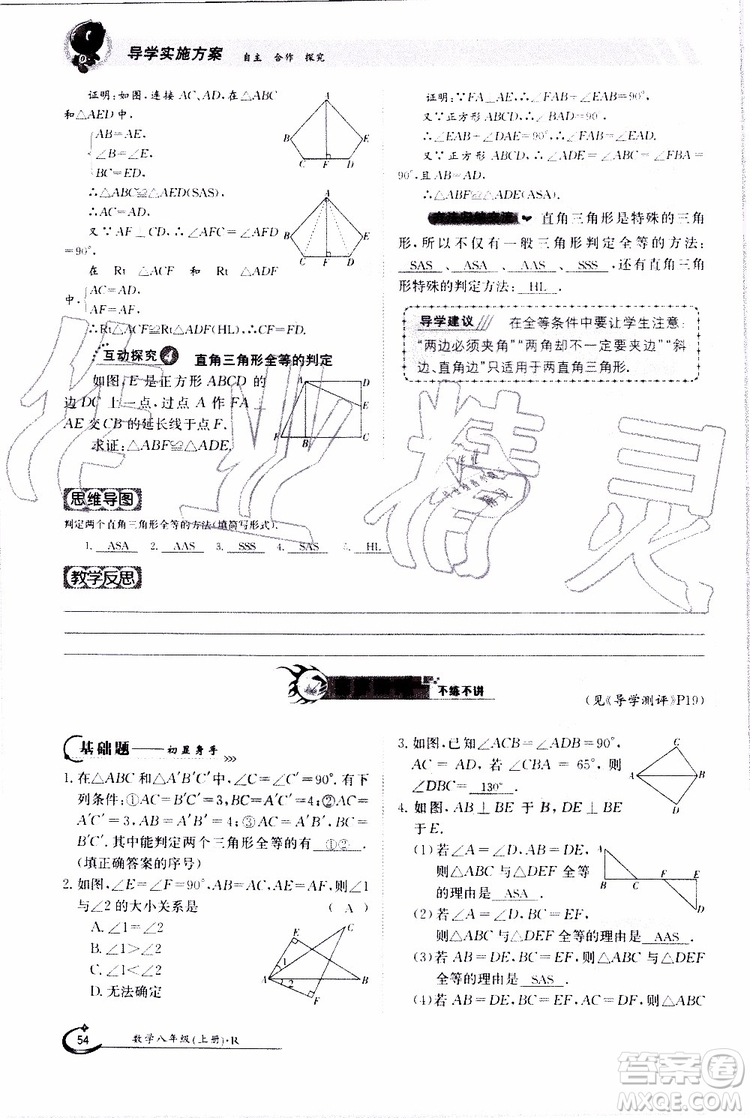 导学实施方案 自主 合作 探究
证明:如图,连接 AC、AD,在△ABC
和△AED 中,
AB=AE,
∠B=∠E,
BC=ED,
∴△ABC≌△AED(SAS).
∴AC=AD.
又∵AF⊥CD,∴∠AFC=∠AFD
=90°.
在 Rt△AFC 和 Rt△ADF
中,
AC=AD,
AF=AF,
∴Rt△ACF≌Rt△ADF(HL).∴CF=DF.
互动探究4 直角三角形全等的判定
如图,E 是正方形 ABCD 的
边 DC 上一点,过点 A 作 FA⊥
AE 交 CB 的延长线于点 F.
求证:△ABF≌△ADE.
A
B
E
C F D
A
B
E
C F D
A D
E
F B C
证明:∵FA⊥AE,∴∠FAB+∠EAB=90°,
又∵正方形 ABCD,∴∠DAB=90°.
∴∠EAB+∠DAE=90°,∴∠FAB=∠DAE.
又∵正方形 ABCD,∴∠ADE=∠ABC=∠FBA=
90°,且 AB=AD,
∴△ABF≌△ADE(ASA).
直角三角形是特殊的三角
形,所以不仅有一般三角形判定全等的方法:
SAS 、 ASA 、 AAS 、 SSS ,还有直角三角
形特殊的判定方法: HL .
导学建议 在全等条件中要让学生注意:
“两边必须夹角”“两角却不一定要夹边”“斜
边、直角边”只适用于两直角三角形.
思维导图
判定两个直角三角形全等的方法(填简写形式).
1. ASA 2. AAS 3. SSS 4. SAS 5. HL
教学反思
不练不讲
(见《导学测评》P19)
基础题——初显身手
1. 在△ABC 和△A′B′C′中,∠C=∠C′=90°.有下
列条件:①AC=A′C′,∠A=∠A′;②AC=A′C′,AB=
A′B′;③AC=A′C′,BC=B′C′;④AB=A′B′,∠A
=∠A′.其中能判定两个三角形全等的有 ①②③④ .
(填正确答案的序号)
2. 如图,∠E=∠F=90°,∠B=∠C,AE=AF,则∠1
与∠2 的大小关系是 ( A )
A. ∠1=∠2
B. ∠1>∠2
C. ∠1<∠2
D. 无法确定
E
C
A
1
2
B
F
3. 如图,已知∠ACB=∠ADB=90°,
BC=BD,∠CAB=65°,则
∠DBC= 130° .
C
A B
D
4. 如图,AB⊥BE 于 B,DE⊥BE
于 E.
(1)若∠A=∠D,AB=DE,
则△ABC 与△DEF 全等
的理由是 ASA .
A
B C F E
D
(2)若∠A=∠D,BC=EF,
则△ABC 与△DEF 全等的理由是 AAS .
(3)若 AB=DE,BC=EF,则△ABC 与△DEF
全等的理由是 SAS .
(4)若 AB=DE,AC=DF,则△ABC 与△DEF
54 数学八年级(上册)·R
作业精灵
答案圈
MXQE.COM